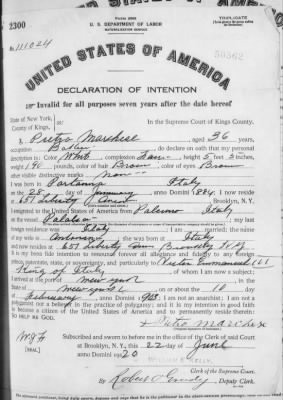 2300
Form 2203
U. S. DEPARTMENT OF LABOR
NATURALIZATION SERVICE
TRIPLICATE
No. 111024
50562
UNITED STATES OF AMERICA
DECLARATION OF INTENTION
Invalid for all purposes seven years after the date hereof
State of New York,
County of Kings,
ss:
In the Supreme Court of Kings County.
I, Pietro Marchese aged 36 years,
occupation Barber, do declare on oath that my personal
description is: Color White, complexion Fair, height 5 feet 3 inches,
weight 140 pounds, color of hair Brown, color of eyes Brown
other visible distinctive marks None
I was born in Italy
on the 28 day of January, anno Domini 1884; I now reside
at 657 Liberty Brooklyn, N.Y.
I emigrated to the United States of America from Palermo Italy
on the vessel ; my last
foreign residence was Italy ; I am married; the name
of my wife is ; she was born in Italy
and now resides at 657 Liberty Brooklyn N.Y.
It is my bona fide intention to renounce forever all allegiance and fidelity to any foreign
prince, potentate, state, or sovereignty, and particularly to Victor Emmanuel III
King of Italy, of whom I am now a subject;
I arrived at the port of New York, in the
State of New York on or about the 10 day
of February, anno Domini ; I am not an anarchist; I am not a
polygamist nor a believer in the practice of polygamy; and it is my intention in good faith
to become a citizen of the United States of America and to permanently reside therein:
SO HELP ME GOD.
Pietro Marchese
Subscribed and sworn to before me in the office of the Clerk of said Court
[SEAL]
at Brooklyn, N.Y., this 22 day of June
anno Domini 1920
WILLIAM E. KELLY
Clerk of the Supreme Court.
By , Deputy Clerk.